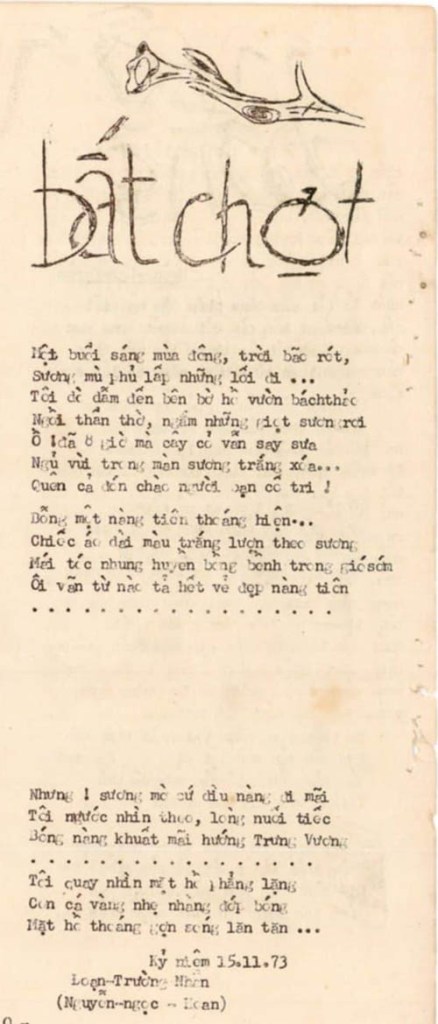 bất chợt
Một buổi sáng mùa đông, trời bão rót,
Sương mù phủ lấp những lối đi ...
Tôi dò dẫm đến bên bờ hồ vườn báchthảo
Ngồi thẩn thờ, ngắm những giọt sươngrơi
Ồ ! đã 8 giờ mà cây cỏ vẫn say sưa
Ngủ vùi trong màn sương trắng xóa...
Quên cả đón chào người bạn cố tri !
Bỗng một nàng tiên thoáng hiện...
Chiếc áo dài màu trắng lượn theo sương
Mái tóc nhung huyền bồng bềnh trong giósớm
Ôi văn từ nào tả hết vẻ đẹp nàng tiên
. . . . . . . . . . . . . . . . . .
Nhưng ! sương mờ cứ dìu nàng đi mãi
Tôi ngước nhìn theo, lòng nuối tiếc
Bóng nàng khuất mãi hướng Trưng Vương
. . . . . . . . . . . . . . . . .
Tôi quay nhìn mặt hồ phẳng lặng
Con cá vàng nhẹ nhàng đớp bóng
Mặt hồ thoáng gợn sóng lăn tăn ...
Kỷ niệm 15.11.73
Đoạn-Trường-Nhân
(Nguyễn-ngọc - Hoan)